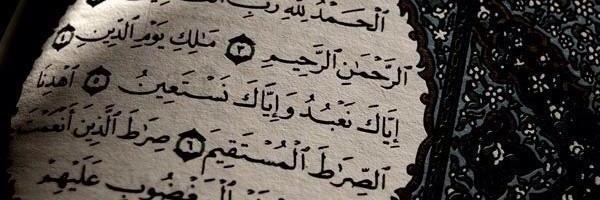 ٱلْحَمْدُ لِلَّهِ رَبِّ
ٱلرَّحْمَٰنِ ٱلرَّحِيمِ ٣ مَٰلِكِ يَوْمِ ٱلدِّينِ
إِيَّاكَ نَعْبُدُ وَإِيَّاكَ نَسْتَعِينُ ٥ ٱهْدِنَا
ٱلصِّرَٰطَ ٱلْمُسْتَقِيمَ ٦ صِرَٰطَ ٱلَّذِينَ أَنْعَمْتَ
ٱلْمَغْضُوبِ عَلَيْهِمْ